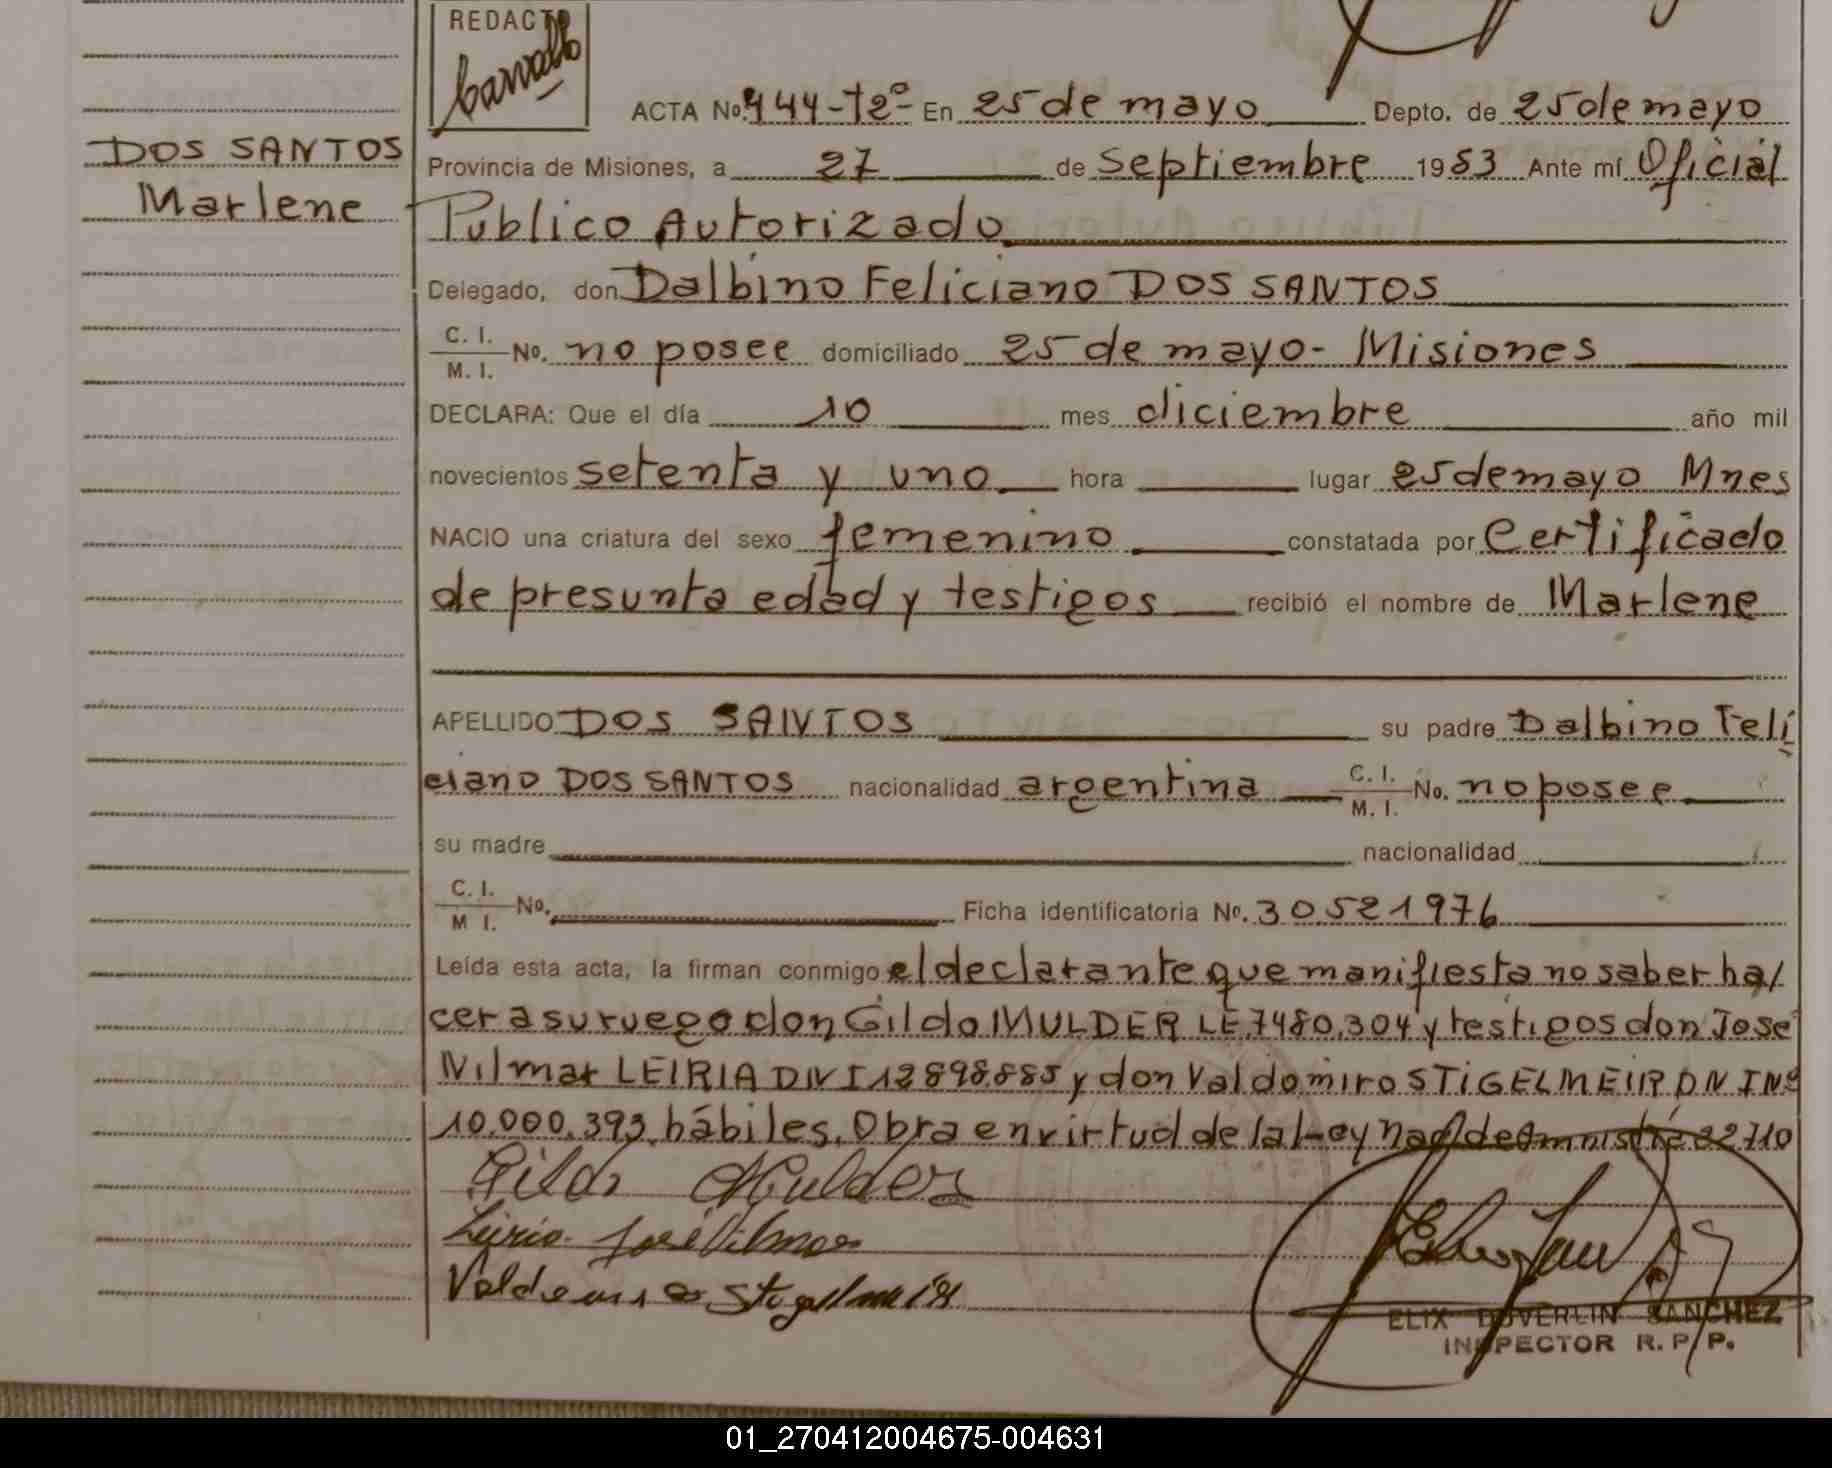 REDACTO
Carvallo
ACTA No. 444-T2º- En 25 de mayo Depto. de 25 de mayo
DOS SANTOS
Marlene
Provincia de Misiones, a 27 de Septiembre 1983 Ante mí Oficial
Publico Autorizado
Delegado, don Dalbino Feliciano DOS SANTOS
C. I.
M. I. No. no posee domiciliado 25 de mayo- Misiones
DECLARA: Que el día 10 mes diciembre año mil
novecientos setenta y uno hora lugar 25 de mayo Mnes
NACIO una criatura del sexo femenino constatada por Certificado
de presunta edad y testigos recibió el nombre de Marlene
APELLIDO DOS SANTOS su padre Dalbino Feli
ciano DOS SANTOS nacionalidad argentina C. I.
M. I. No. no posee
su madre nacionalidad
C. I.
M I. No. Ficha identificatoria No. 30521976
Leída esta acta, la firman conmigo el declarante que manifiesta no saber ha/
cer a su ruego don Gildo MULDER LE 7480.304 y testigos don José
Nilmar LEIRIA DNI 12898.885 y don Valdomiro STIGELMEIR DNI Nº
10.000.393 hábiles. Obra en virtud de la Ley Nacl de Amnistía 22710
Gildo Mulder
Leiria José Vilmar
Valdomiro Stigelmeir
ELIX DUVERLIN SANCHEZ
INSPECTOR R. P. P.
01_270412004675-004631